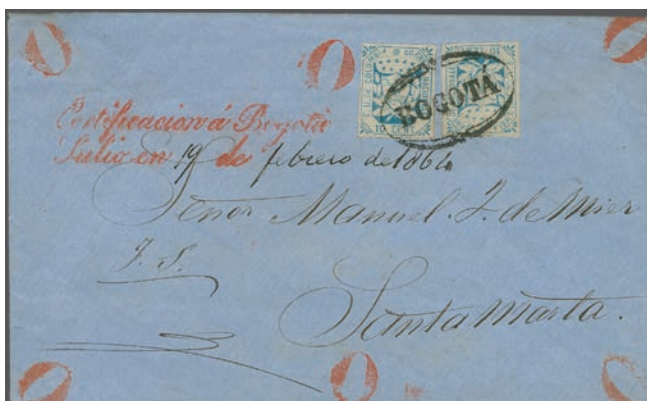 BOGOTÁ
10 CENT
Certificacion á Bogotá
Salio en 19 de febrero de 1864
Señor Manuel J. de Mier
Santa Marta.